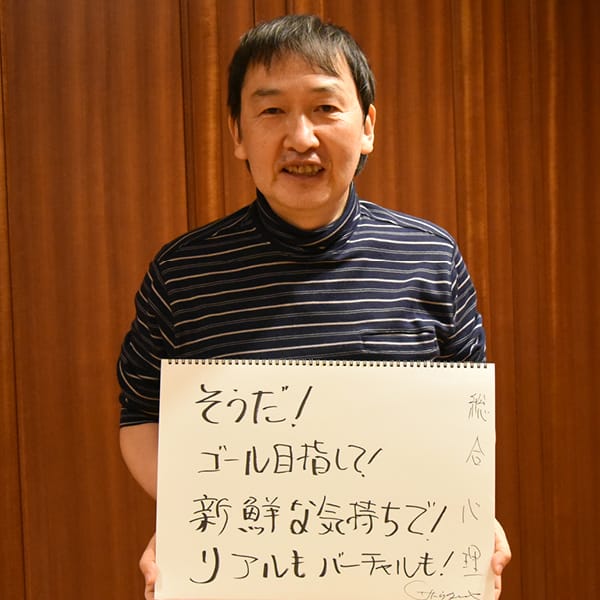 そうだ!
ゴール目指して!
新鮮な気持ちで!
リアルもバーチャルも!
総合心理